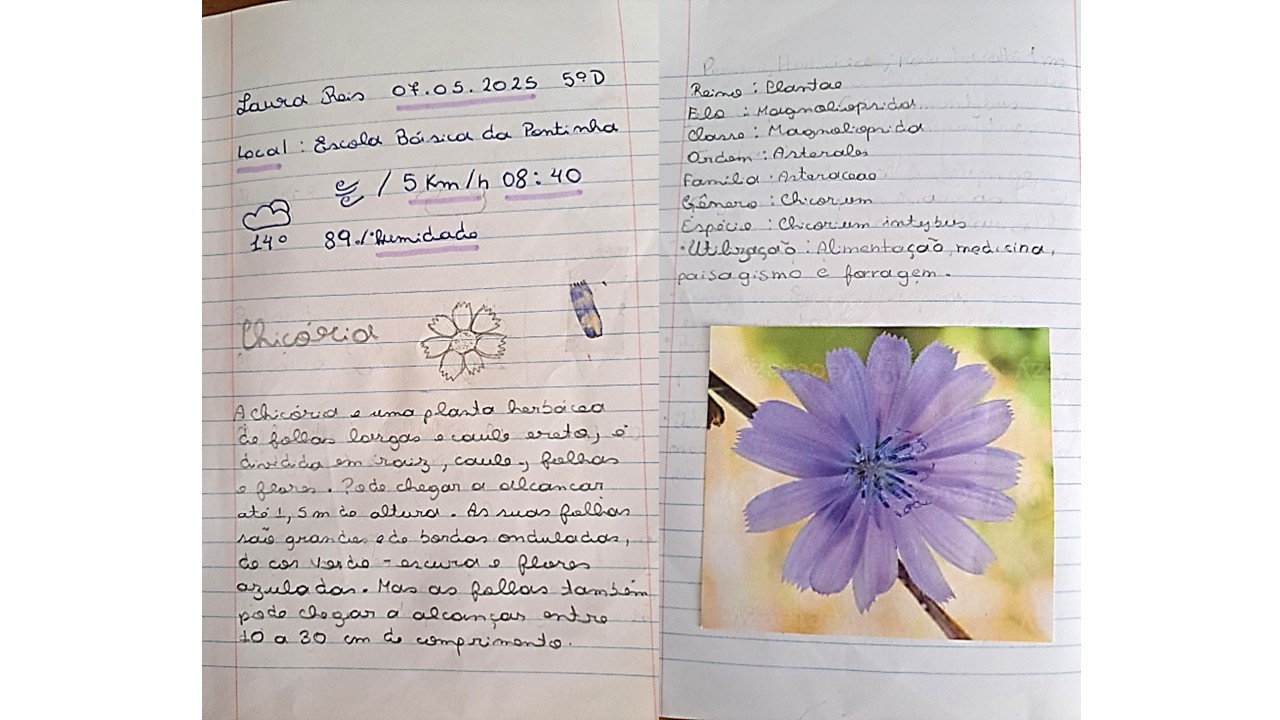 Laura Reis 07.05.2025 5ºD
Local : Escola Básica da Pontinha
/ 5 Km/h 08:40
14º 89%humidade
Chicória
A chicória e uma planta herbácea
de follas largas e caule ereto, é
dividida em raiz, caule, folhas
e flores. Pode chegar a alcancar
até 1,5m de altura. As suas folhas
são grandes e de bordas onduladas,
de cor verde-escura e flores
azuladas. Mas as follas também
pode chegar a alcançar entre
10 a 30 cm de comprimento.
Reino : Plantae
Elo : Magnoliopsida
Classe : Magnoliopsida
Ordem : Asterales
Familia : Asteraceae
Gênero : Chicorium
Espécie : Chicorium intybus
·Utilização : Alimentação, medicina,
paisagismo e forragem.